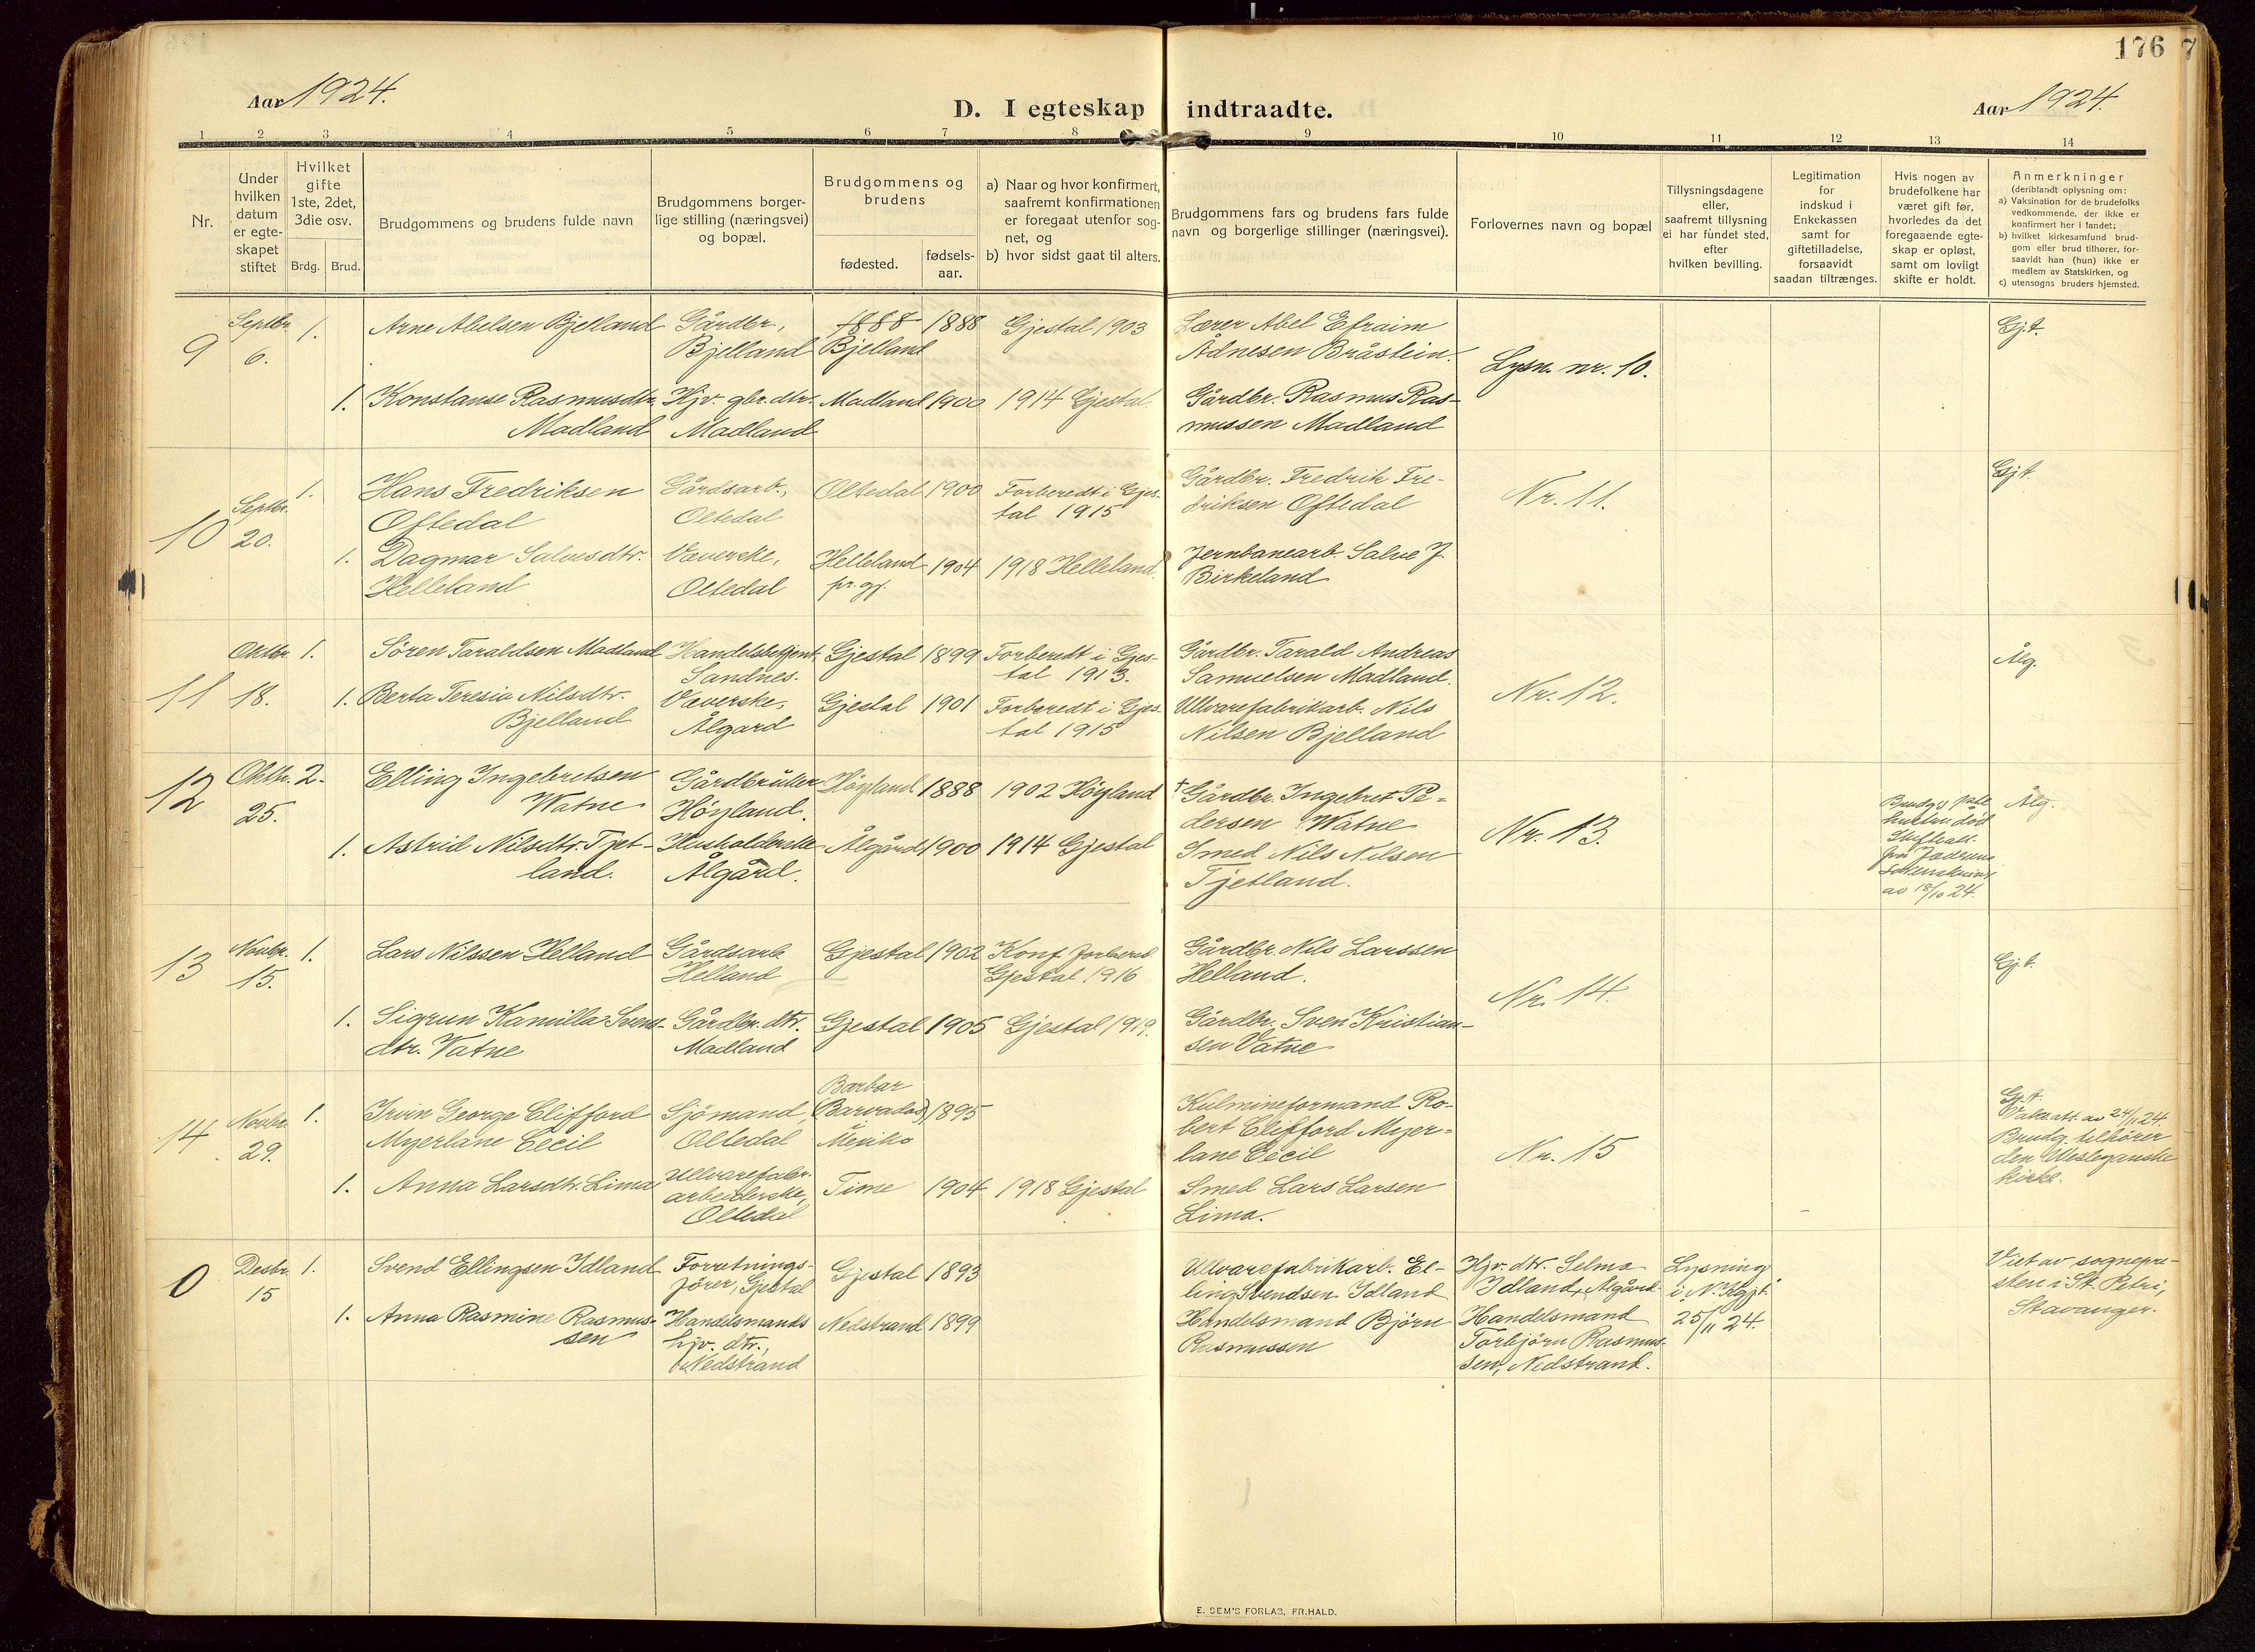 176
7
Aar 1924.
D. I egteskap indtraadte.
Aar 1924.
1 2 3 4 5 6 7 8 9 10 11 12 13 14
Nr.
Under hvilken datum er egte-skapet stiftet
Hvilket gifte 1ste, 2det, 3die osv.
Brdg. Brud.
Brudgommens og brudens fulde navn
Brudgommens borger-lige stilling (næringsvei) og bopæl.
Brudgommens og brudens
fødested.
fødsels-aar.
a) Naar og hvor konfirmert, saafremt konfirmationen er foregaat utenfor sog-net, og
b) hvor sidst gaat til alters.
Brudgommens fars og brudens fars fulde navn og borgerlige stillinger (næringsvei).
Forlovernes navn og bopæl
Tillysningsdagene eller, saafremt tillysning ei har fundet sted, efter hvilken bevilling.
Legitimation for indskud i Enkekassen samt for giftetilladelse, forsaavidt saadan tiltrænges.
Hvis nogen av brudefolkene har været gift før, hvorledes da det foregaaende egte-skap er opløst, samt om lovligt skifte er holdt.
Anmerkninger
(deriblandt oplysning om:
a) Vaksination for de brudefolks vedkommende, der ikke er konfirmert her i landet;
b) hvilket kirkesamfund brud-gom eller brud tilhører, for-saavidt han (hun) ikke er medlem av Statskirken, og
c) utensogns bruders hjemsted.
9
Septbr. 6.
1.
Arne Abelsen Bjelland
Gårdbr., Bjelland
1888 Bjelland
1888
Gjestal 1903
Lærer Abel Efraim Ådnesen Bråstein.
Lysn. nr. 10.
Gjt.
1.
Konstanse Rasmusdtr. Madland
Hjv. gbr. dtr. Madland
Madland
1900
1914 Gjestal.
Gårdbr. Rasmus Ras-mussen Madland
10
Septbr. 20.
1.
Hans Fredriksen Oftedal
Gårdsarb., Oltedal
Oltedal
1900
Forberedt i Gjes-tal 1915
Gårdbr. Fredrik Fre-driksen Oftedal
Nr. 11.
Gjt.
1.
Dagmar Salvesdtr. Helleland
Væverske, Oltedal
Helleland pr. gj.
1904
1918 Helleland.
Jernbanearb. Salve J. Birkeland
11
Oktbr. 18.
1.
Søren Taraldsen Madland
Handelsbetjent, Sandnes.
Gjestal
1899
Forberedt i Gjes-tal 1913.
Gårdbr. Tarald Andreas Samuelsen Madland.
Nr. 12.
Ålg.
1.
Berta Teresia Nilsdtr. Bjelland
Væverske, Ålgard
Gjestal
1901
Forberedt i Gjes-tal 1915
Ullvarefabrikarb. Nils Nilsen Bjelland
12
Oktbr. 25.
2.
Elling Ingebretsen Watne
Gårdbruker Høyland.
Høyland
1888
1902 Høyland
† Gårdbr. Ingebret Pe-dersen Watne
Nr. 13.
Brudgs hustru død Skifteatt. fra Jæderens Sorenskriveri av 18/10 24.
Ålg.
1.
Astrid Nilsdtr. Tjet-land.
Husholderske Ålgård.
Ålgård
1900
1914 Gjestal
Smed Nils Nilsen Tjetland.
13
Novbr. 15.
1.
Lars Nilssen Helland
Gårdsarb. Helland
Gjestal
1902
Konf. forbered. Gjestal 1916
Gårdbr. Nils Larssen Helland.
Nr. 14.
Gj.t.
1.
Sigrun Kamilla Svens-dtr. Vatne
Gårdbr. dtr. Madland
Gjestal
1905
Gjestal 1919.
Gårdbr. Sven Kristian-sen Vatne
14
Novbr. 29.
1.
Irvin George Clifford Myerlane Cecil
Sjömand, Oltedal
Barbar (Barvados) Mexiko
1895
Kulmineformand Ro-bert Clifford Myer-lane Cecil
Nr. 15
Gjt. Vaksatt. av 24/11 24. Brudg. tilhører den Wesleyanske kirke.
1.
Anna Larsdtr. Lima
Ullvarefabr. arbeiderske, Oltedal
Time
1904
1918 Gjestal
Smed Lars Larsen Lima.
0
Desbr. 15
1.
Svend Ellingsen Idland
Forretnings-fører, Gjestal
Gjestal
1893
Ullvarefabrikarb. El-ling Svendsen Idland
Hjv. dtr. Selma Idland, Ålgård.
Lysning i N. Kgjt. 25/11 24.
Viet av sognepre-sten i St. Petri, Stavanger.
1.
Anna Rasmine Rasmus-sen
Handelsmands hjv. dtr., Nedstrand
Nedstrand
1899
Handelsmand Bjørn Rasmussen
Handelsmand Torbjörn Rasmus-sen, Nedstrand.
E. SEM'S FORLAG, FR.HALD.